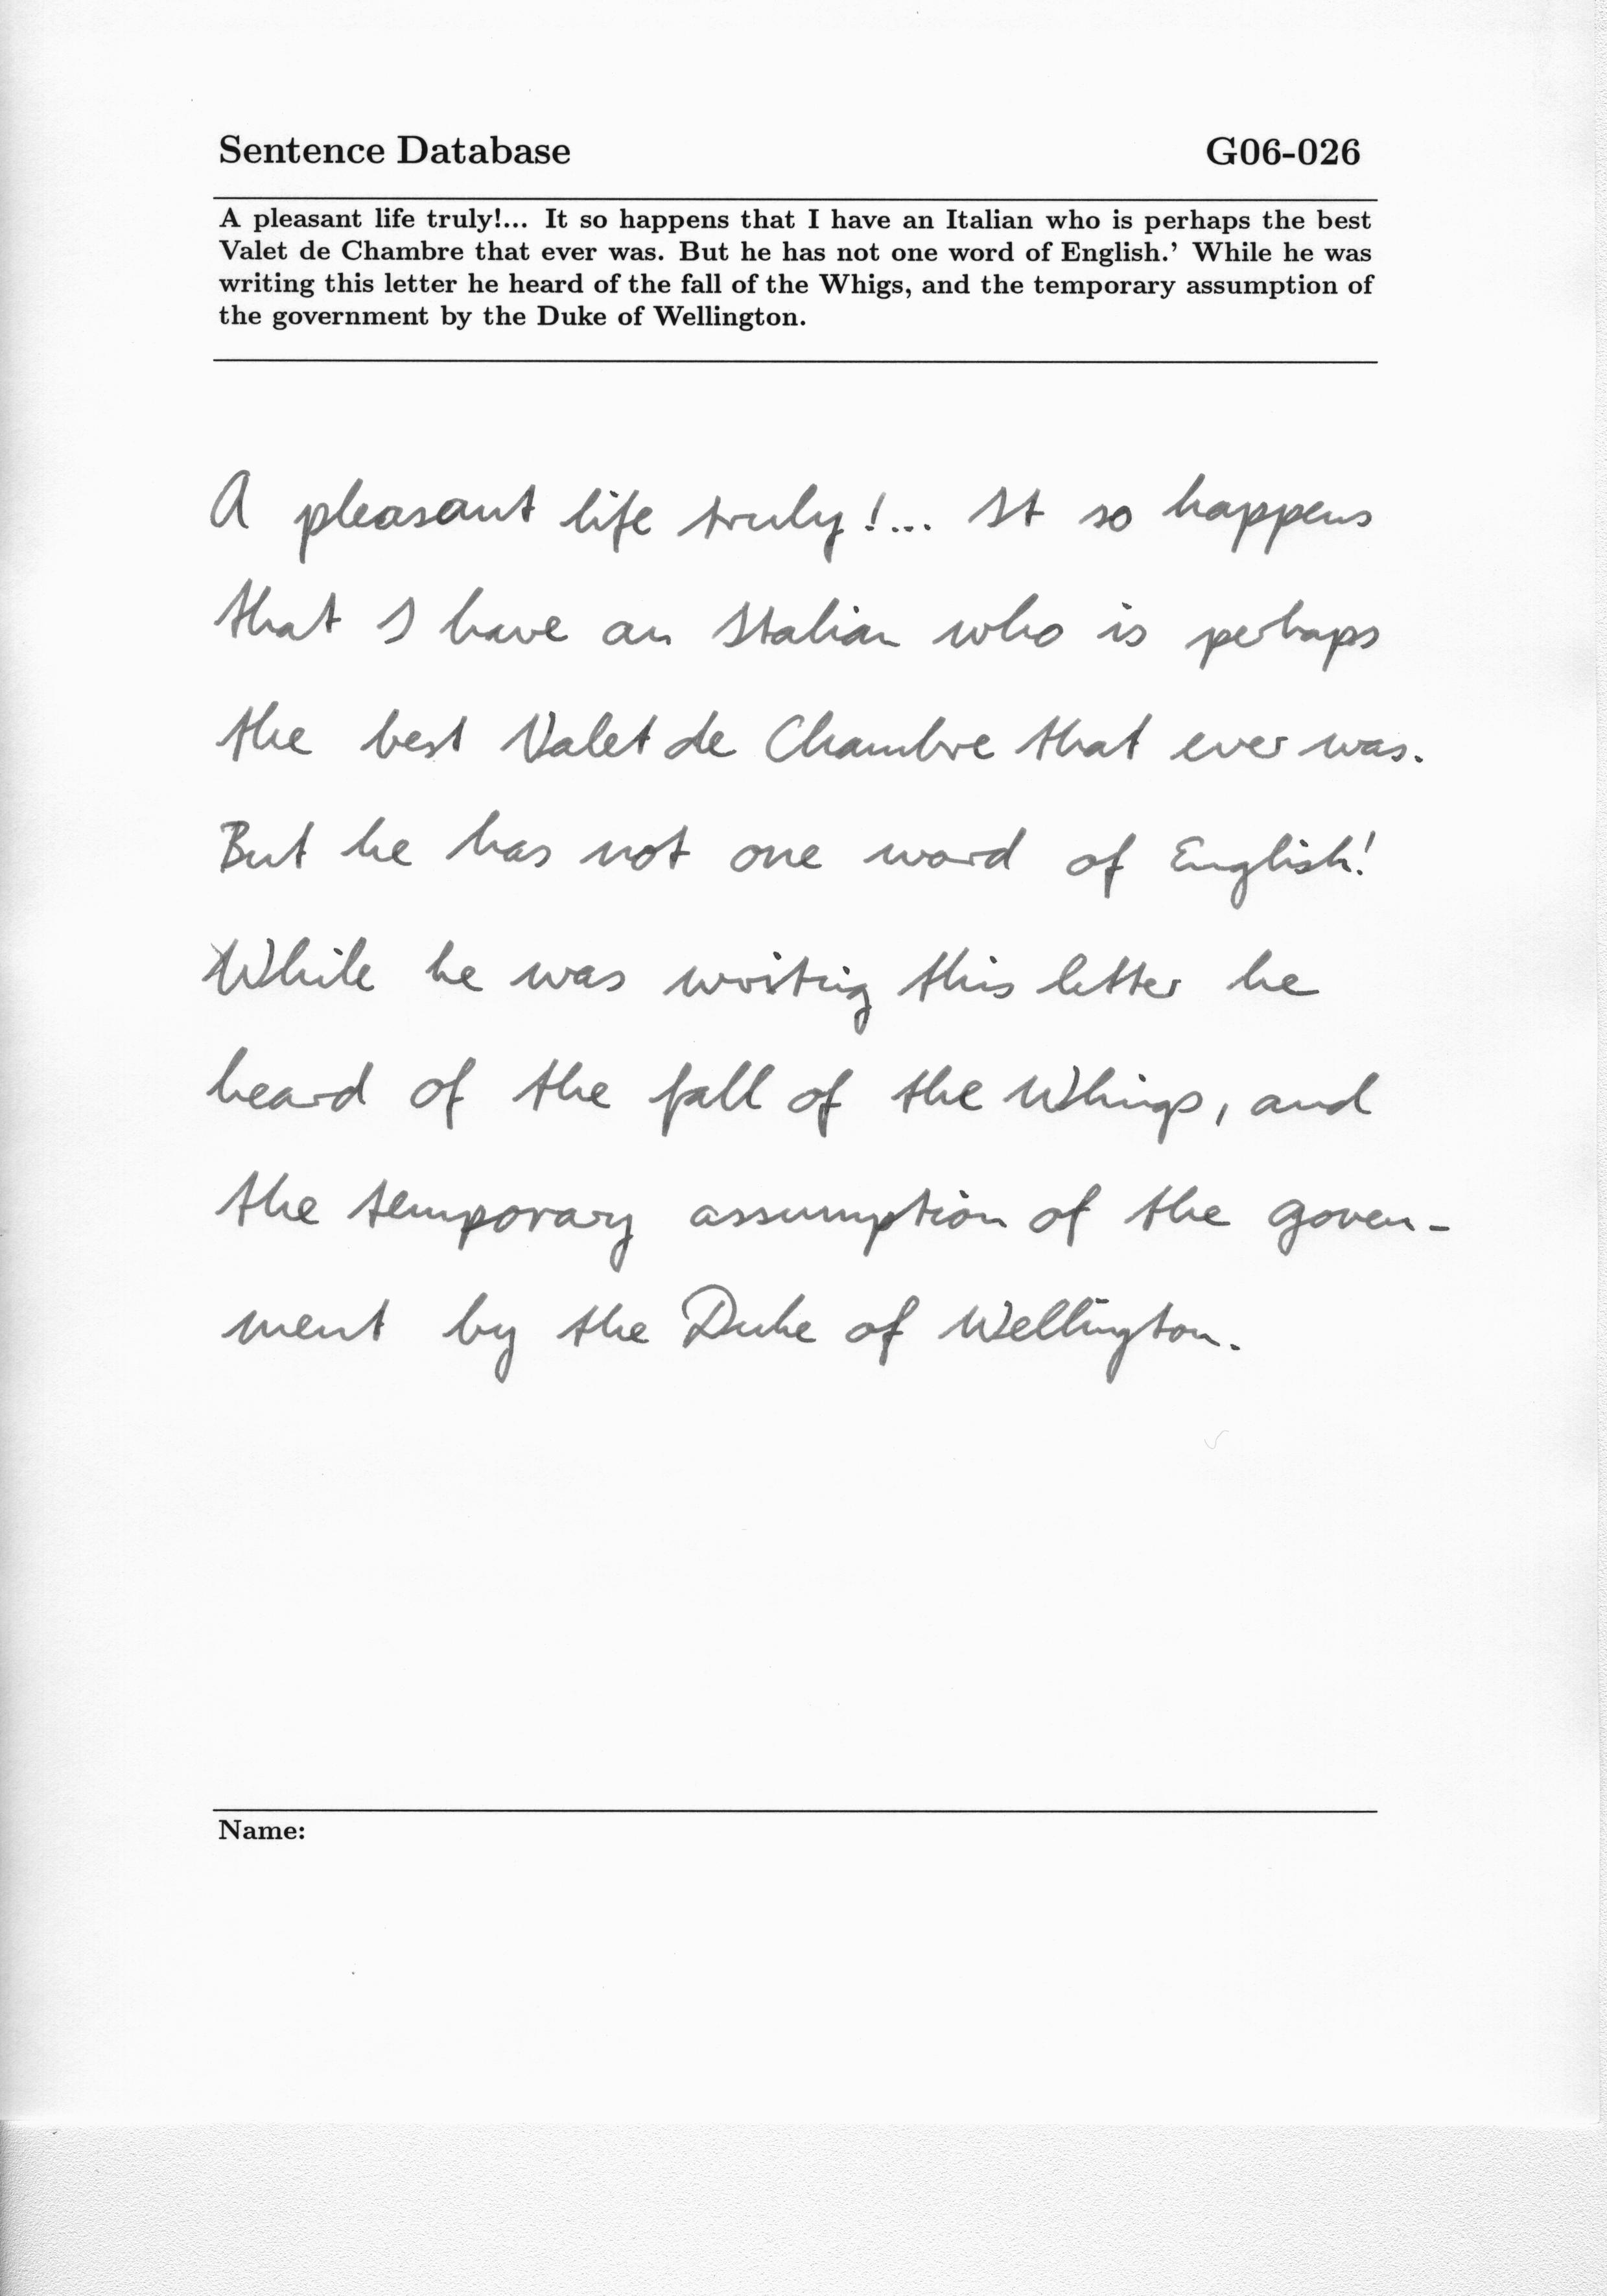 Sentence Database G06-026
A pleasant life truly!... It so happens that I have an Italian who is perhaps the best
Valet de Chambre that ever was. But he has not one word of English.' While he was
writing this letter he heard of the fall of the Whigs, and the temporary assumption of
the government by the Duke of Wellington.
A pleasant life truly!... It so happens
that I have an Italian who is perhaps
the best Valet de Chambre that ever was.
But he has not one word of English!
While he was writig this letter he
heard of the fall of the Whings, and
the temporary assumption of the goven-
ment by the Duke of Wellington.
Name: